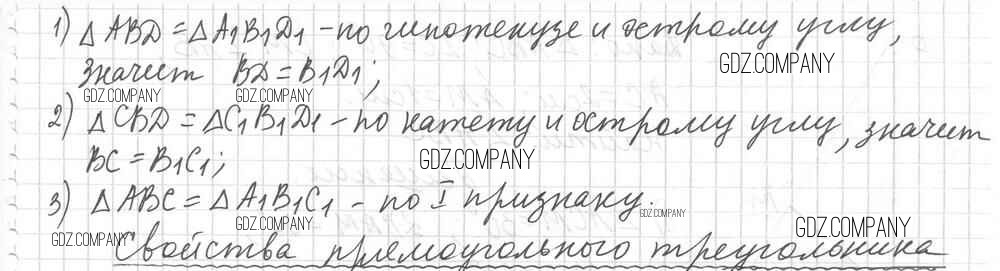 1) △ABD = △A₁B₁D₁ - по гипотенузе и острому углу,
GDZ.COMPANY
значит BD = B₁D₁;
GDZ.COMPANY GDZ.COMPANY
2) △CBD = △C₁B₁D₁ - по катету и острому углу, значит
BC = B₁C₁;
GDZ.COMPANY
3) △ABC = △A₁B₁C₁ - по I признаку.
GDZ.COMPANY
GDZ.COMPANY GDZ.COMPANY GDZ.COMPANY
Свойства прямоугольного треугольника